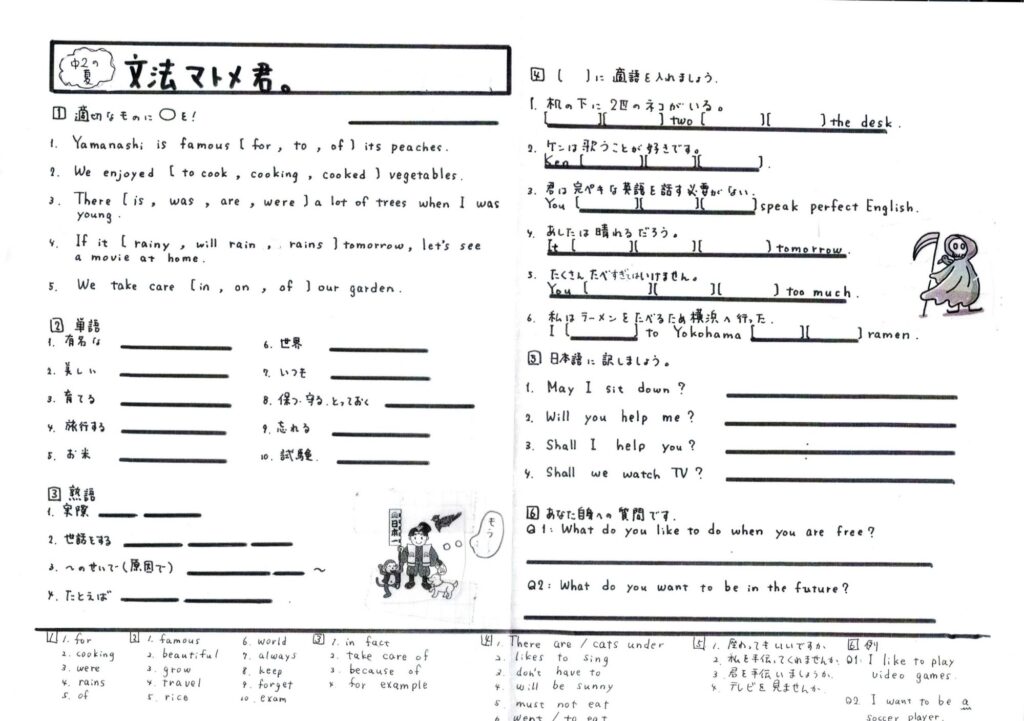 中2の夏
文法マトメ君。
1 適切なものに○を!
1. Yamanashi is famous [ for , to , of ] its peaches.
2. We enjoyed [ to cook , cooking , cooked ] vegetables.
3. There [ is , was , are , were ] a lot of trees when I was
young.
4. If it [ rainy , will rain , rains ] tomorrow, let's see
a movie at home.
5. We take care [ in , on , of ] our garden.
2 単語
1. 有名な
2. 美しい
3. 育てる
4. 旅行する
5. お米
6. 世界
7. いつも
8. 保つ・守る、とっておく
9. 忘れる
10. 試験.
3 熟語
1. 実際
2. 世話をする
3. 〜のせいで(原因で) 〜
4. たとえば
日本一
4 [ ] に 適語を入れましょう.
1. 机の下に 2匹のネコがいる。
[ ][ ] two [ ][ ] the desk.
2. ケンは歌うことが好きです。
Ken [ ][ ][ ].
3. 君は完ペキな英語を話す必要がない.
You [ ][ ][ ] speak perfect English.
4. あしたは晴れるだろう。
It [ ][ ][ ] tomorrow.
5. たくさんたべすぎてはいけません。
You [ ][ ][ ] too much.
6. 私はラーメンをたべるため横浜へ行った.
I [ ] to Yokohama [ ][ ] ramen.
5 日本語に訳しましょう。
1. May I sit down?
2. Will you help me?
3. Shall I help you?
4. Shall we watch TV?
6 あなた自身への質問です.
Q1: What do you like to do when you are free?
Q2: What do you want to be in the future?
1 1. for
2. cooking
3. were
4. rains
5. of
2 1. famous
2. beautiful
3. grow
4. travel
5. rice
6. world
7. always
8. keep
9. forget
10. exam
3 1. in fact
2. take care of
3. because of
4. for example
4 1. There are / cats under
2. likes to sing
3. don't have to
4. will be sunny
5. must not eat
6. went / to eat
5 1.座ってもいいですか.
2. 私を手伝ってくれませんか.
3. 君を手伝いましょうか.
4. テレビを見ませんか.
6 例
Q1. I like to play
video games.
Q2. I want to be a
soccer player.